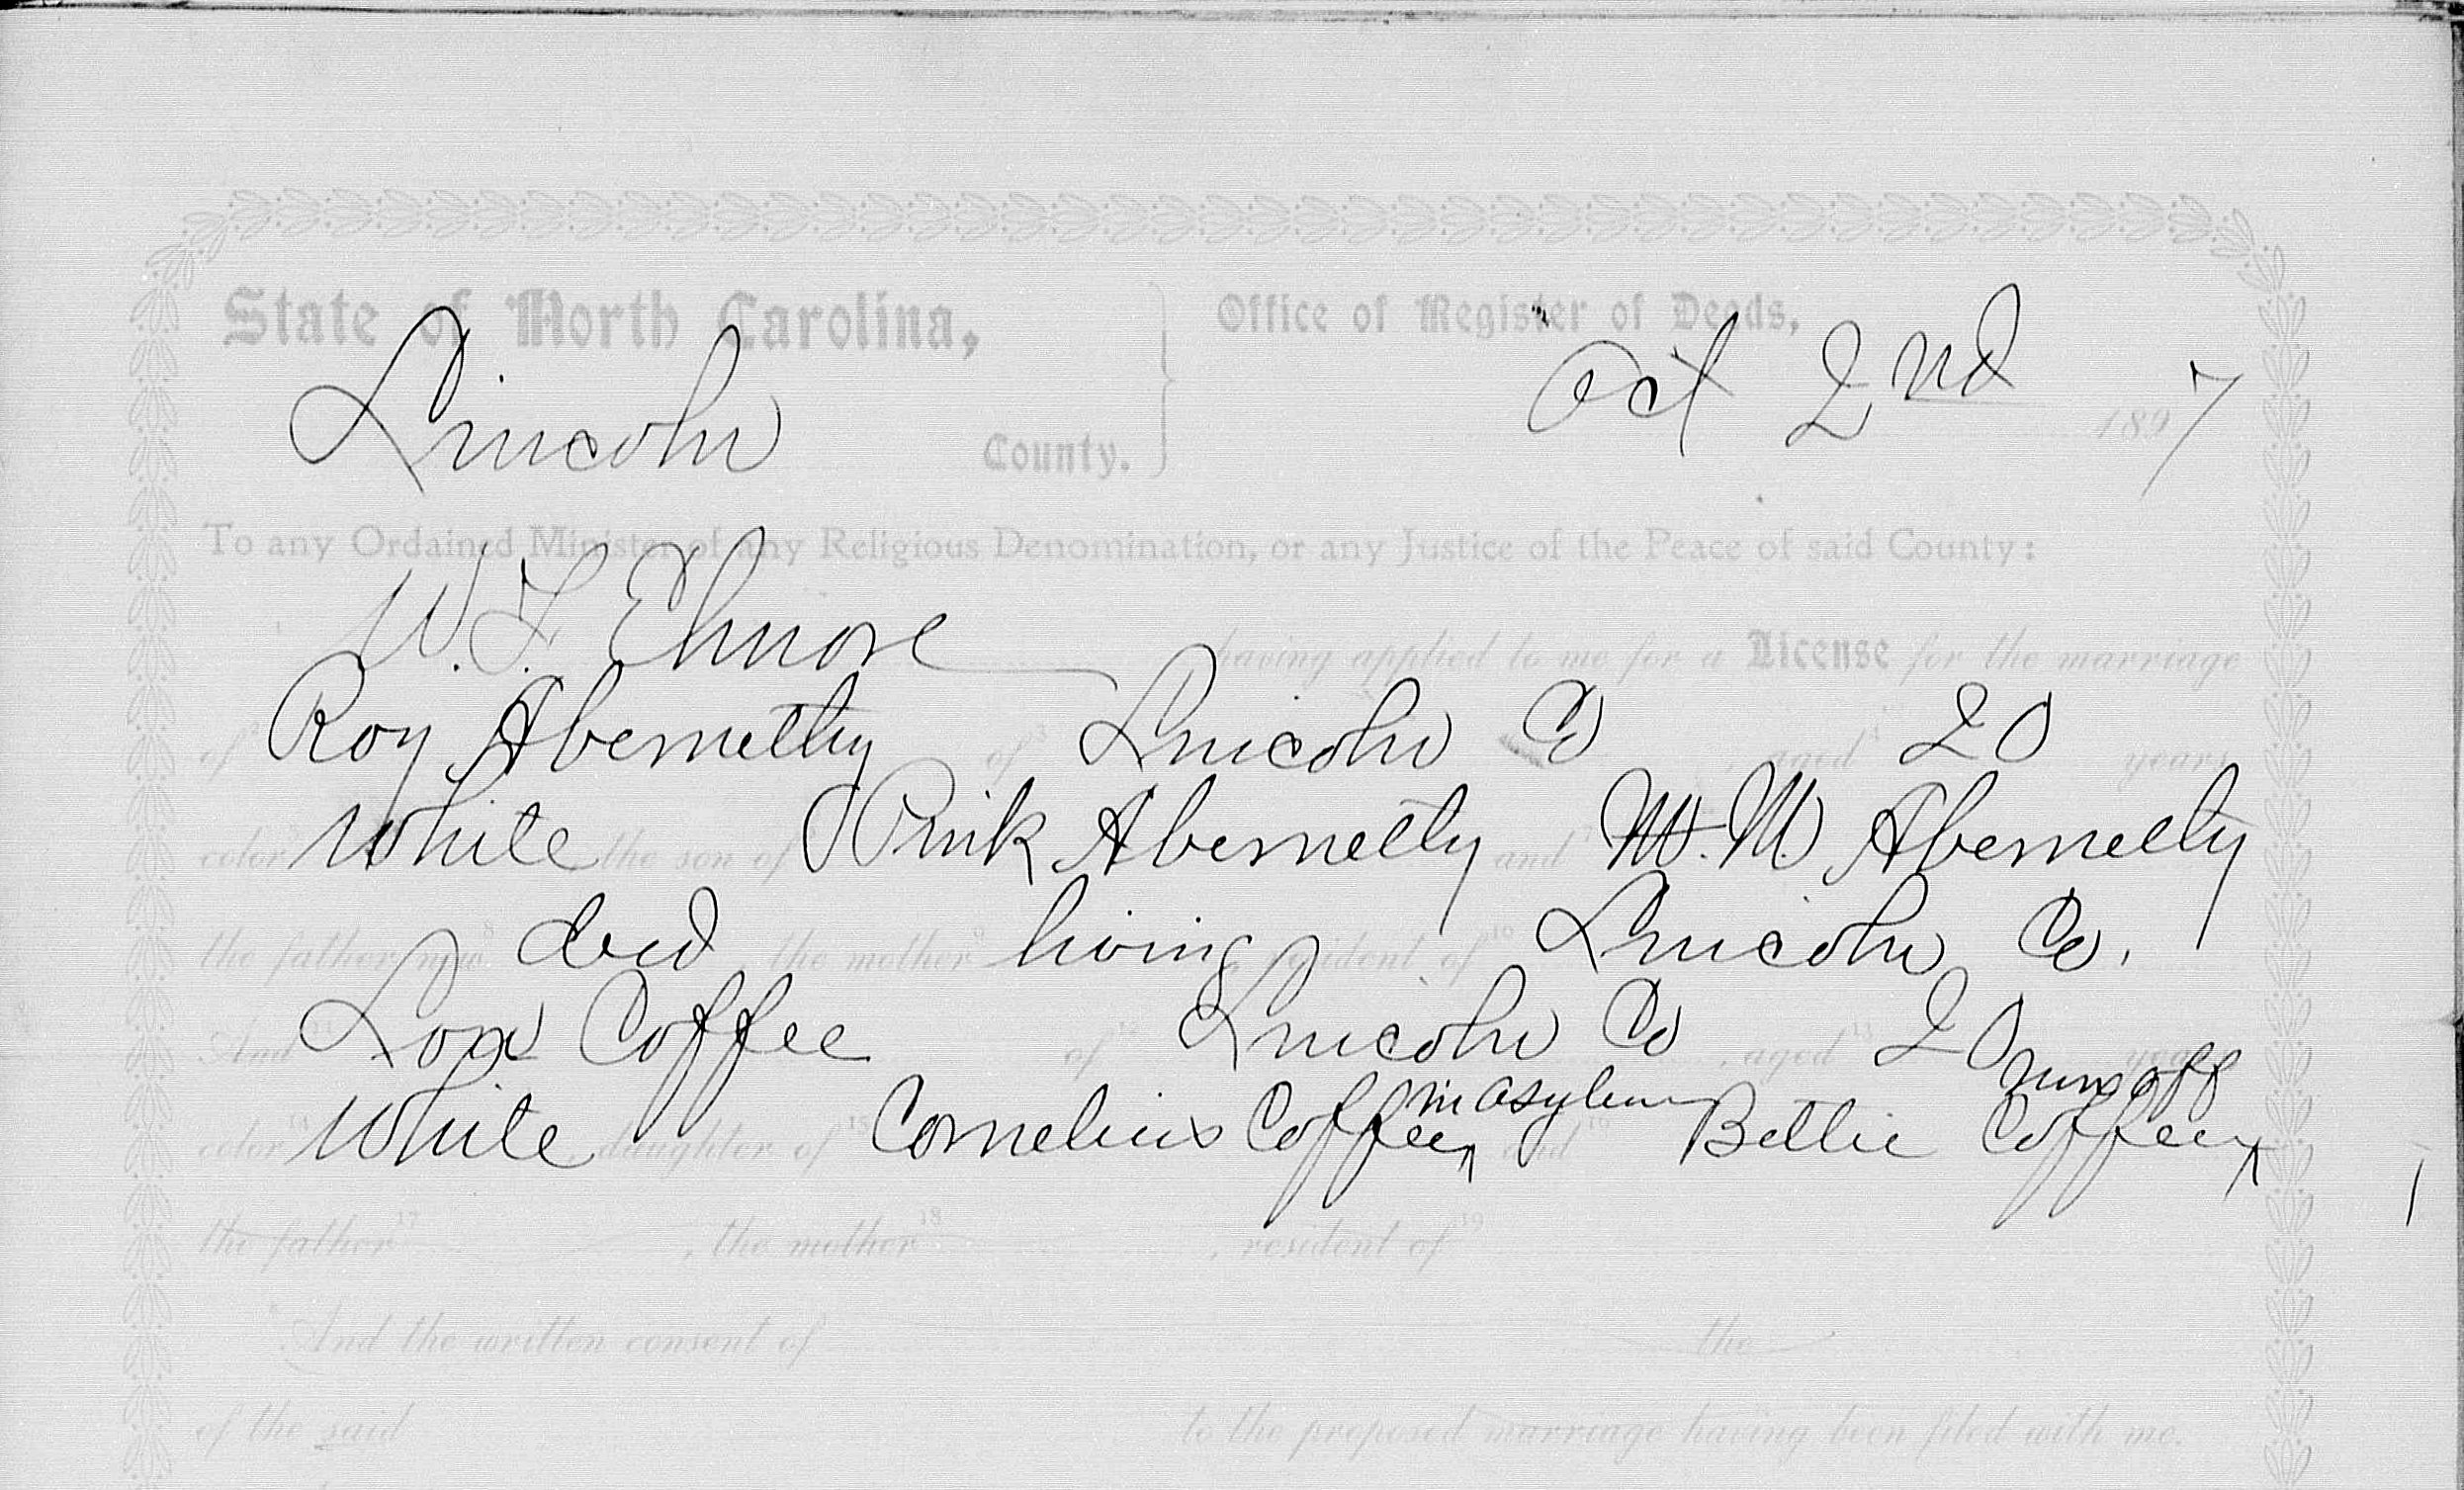 State of North Carolina, Office of Register of Deeds,
Lincoln County. Oct 2nd 1897
To any Ordained Minister of any Religious Denomination, or any Justice of the Peace of said County:
W. L. Elmore having applied to me for a License for the marriage
of 2 Roy Abernethy of 3 Lincoln Co, aged 4 20 years
color White, the son of Pink Abernethy and 7 M. M. Abernethy
the father now 8 ded, the mother 9 living, resident of 10 Lincoln Co.
And Lox Coffee of Lincoln Co, aged 13 20 years
in asylum runs off
color 14 White, daughter of 15 Cornelius Coffee and 16 Bettie Coffee
the father 17, the mother 18, resident of 19
And the written consent of the
of the said to the proposed marriage having been filed with me.